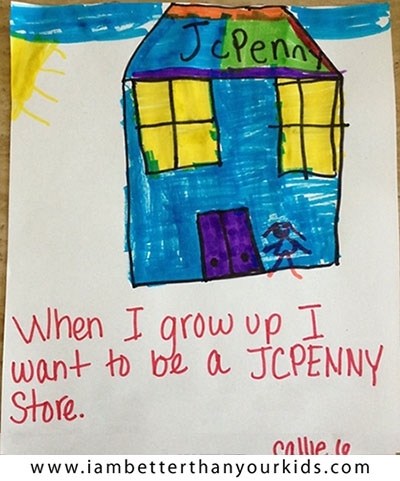 JcPenny
When I grow up I
want to be a JCPENNY
Store.
Callie, 6
www.iambetterthanyourkids.com